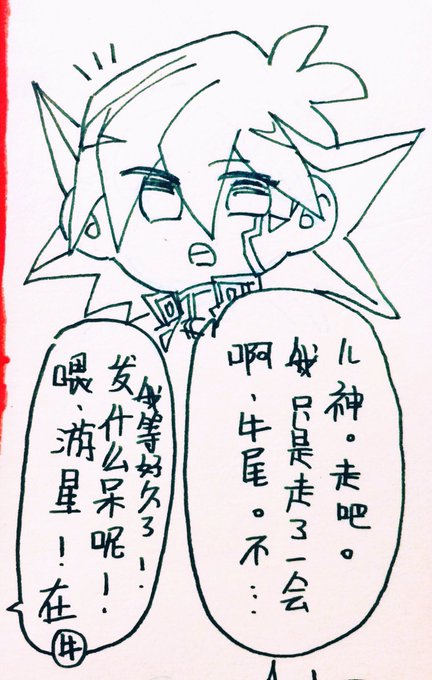 喂、游星！在
发什么呆呢！
我等好久了！
牛
啊、牛尾。不…
我只是走了一会
儿神。走吧。